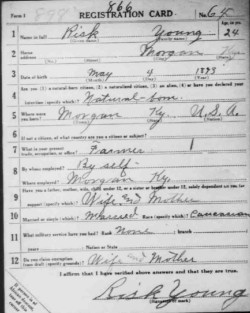 Form 1
866
REGISTRATION CARD
No. 65
1 Name in full Risk Young
Age, in yrs. 24
2 Home address Morgan Ky.
3 Date of birth May 4 1893
4 Are you (1) a natural-born citizen, (2) a naturalized citizen, (3) an alien, (4) or have you declared your intention (specify which)? Natural-born
5 Where were you born? Morgan Ky. U.S.A.
6 If not a citizen, of what country are you a citizen or subject?
7 What is your present trade, occupation, or office? Farmer
8 By whom employed? By self
Where employed? Morgan Ky.
9 Have you a father, mother, wife, child under 12, or a sister or brother under 12, solely dependent on you for support (specify which)? Wife and Mother
10 Married or single (which)? Married Race (specify which)? Caucasian
11 What military service have you had? Rank None branch
years Nation or State
12 Do you claim exemption from draft (specify grounds)? Wife and Mother
I affirm that I have verified above answers and that they are true.
Risk Young